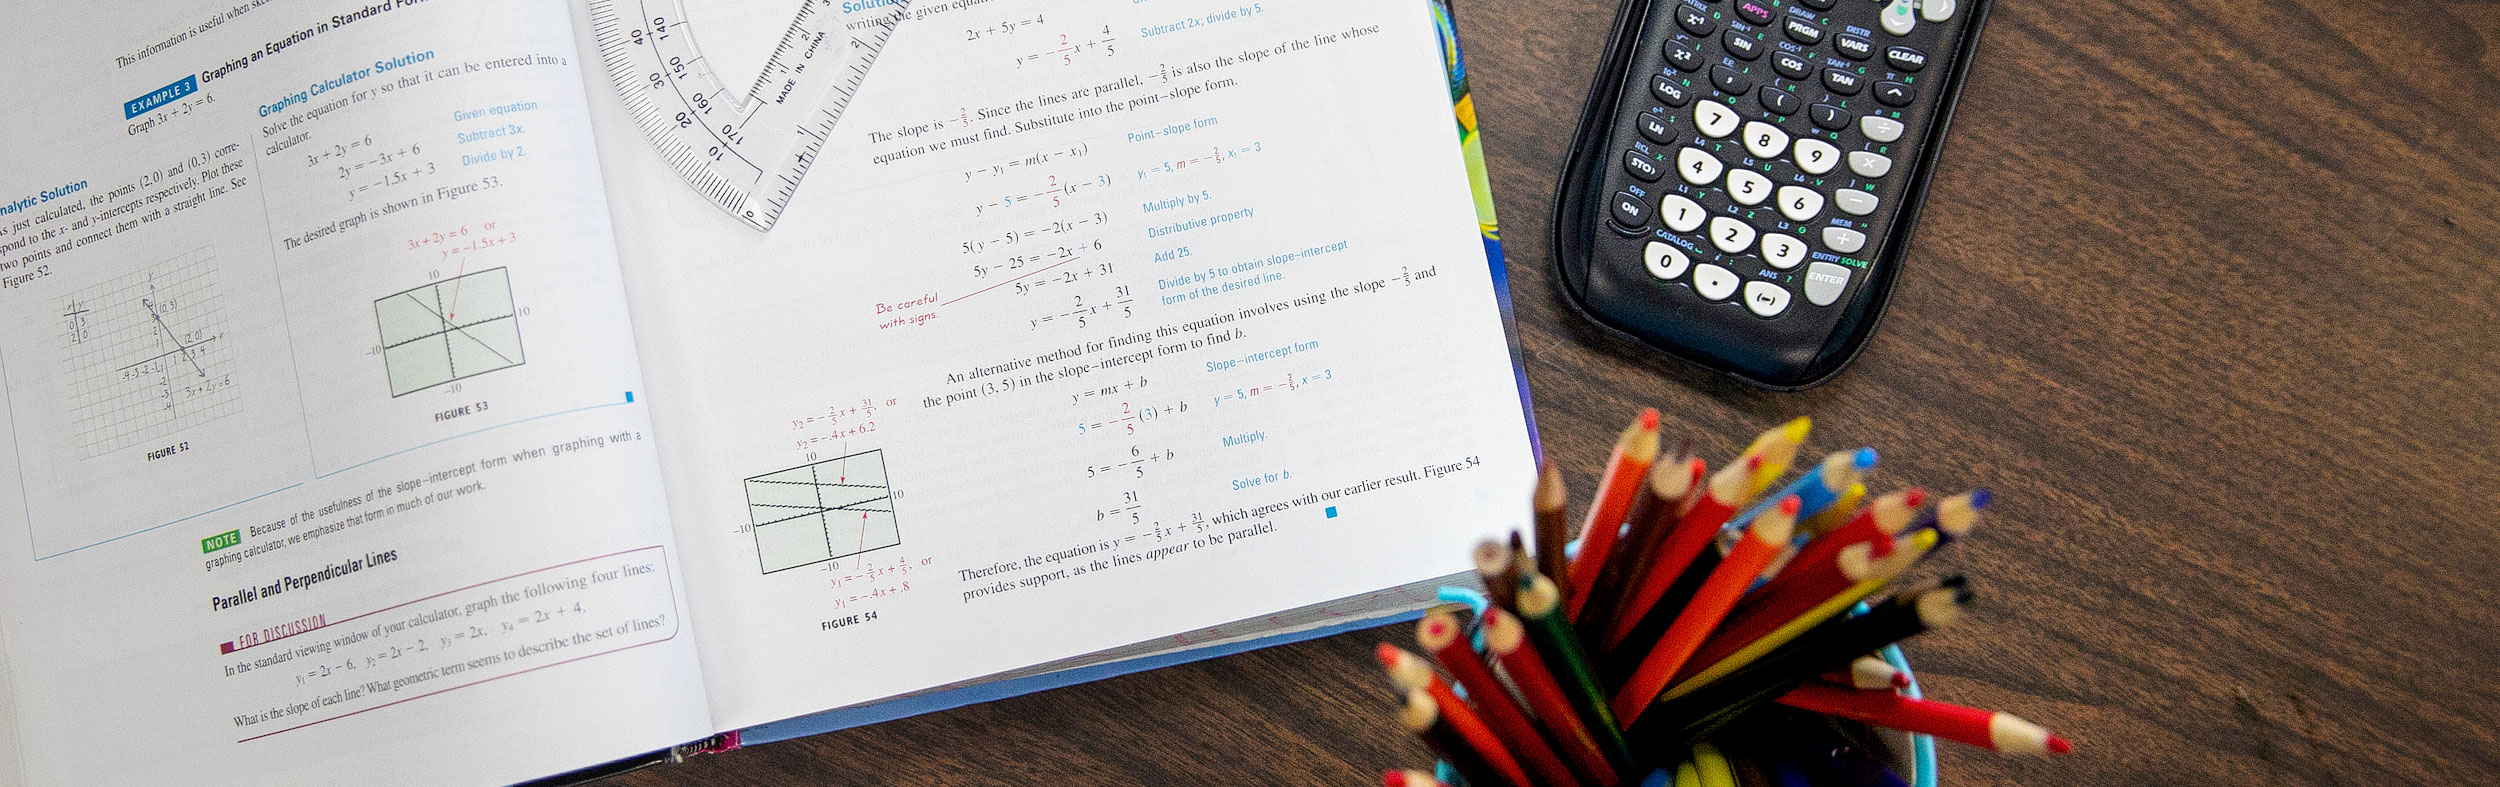 This information is useful when
EXAMPLE 3 Graphing an Equation in Standard
Graph 3x + 2y = 6.
nalytic Solution
As just calculated, the points (2,0) and (0,3) corre-
spond to the x- and y-intercepts respectively. Plot these
two points and connect them with a straight line. See
Figure 52.
x y
0 3
2 0
y
(0,3)
(2,0)
x
3x+2y=6
FIGURE 52
Graphing Calculator Solution
Solve the equation for y so that it can be entered into a
calculator.
3x + 2y = 6 Given equation
2y = −3x + 6 Subtract 3x.
y = −1.5x + 3 Divide by 2.
The desired graph is shown in Figure 53.
3x + 2y = 6 or
y = −1.5x + 3
10
−10 10
−10
FIGURE 53
NOTE Because of the usefulness of the slope–intercept form when graphing with a
graphing calculator, we emphasize that form in much of our work.
Parallel and Perpendicular Lines
FOR DISCUSSION
In the standard viewing window of your calculator, graph the following four lines:
y₁ = 2x − 6, y₂ = 2x − 2, y₃ = 2x, y₄ = 2x + 4.
What is the slope of each line? What geometric term seems to describe the set of lines?
40 140
30 150
20 160
10 170
0
MADE IN CHINA
1
2
3
1
2
Solution
writing the given
2x + 5y = 4
y = −2/5 x + 4/5 Subtract 2x; divide by 5.
The slope is −2/5. Since the lines are parallel, −2/5 is also the slope of the line whose
equation we must find. Substitute into the point–slope form.
y − y₁ = m(x − x₁) Point–slope form
y − 5 = −2/5(x − 3) y₁ = 5, m = −2/5, x₁ = 3
5(y − 5) = −2(x − 3) Multiply by 5.
5y − 25 = −2x + 6 Distributive property
5y = −2x + 31 Add 25.
Be careful
with signs.
y = −2/5 x + 31/5 Divide by 5 to obtain slope–intercept
form of the desired line.
An alternative method for finding this equation involves using the slope −2/5 and
the point (3, 5) in the slope–intercept form to find b.
y = mx + b Slope–intercept form
5 = −2/5(3) + b y = 5, m = −2/5, x = 3
5 = −6/5 + b Multiply.
b = 31/5 Solve for b.
Therefore, the equation is y = −2/5 x + 31/5, which agrees with our earlier result. Figure 54
provides support, as the lines appear to be parallel.
y₂ = −2/5 x + 31/5, or
y₂ = −.4x + 6.2
10
−10 10
−10
y₁ = −2/5 x + 4/5, or
y₁ = −.4x + .8
FIGURE 54
DRAW C DISTR
x⁻¹ APPS PRGM VARS CLEAR
SIN⁻¹ E COS⁻¹ F TAN⁻¹ G π H
x² SIN COS TAN ^
10ˣ N EE J
LOG , ( ) ÷
eˣ S
LN 7 8 9 ×
RCL X L4 T L5 U L6 V W
STO› 4 5 6 −
OFF L1 Y L2 Z L3 θ MEM "
ON 1 2 3 +
CATALOG i : ANS ? ENTRY SOLVE
0 . (−) ENTER